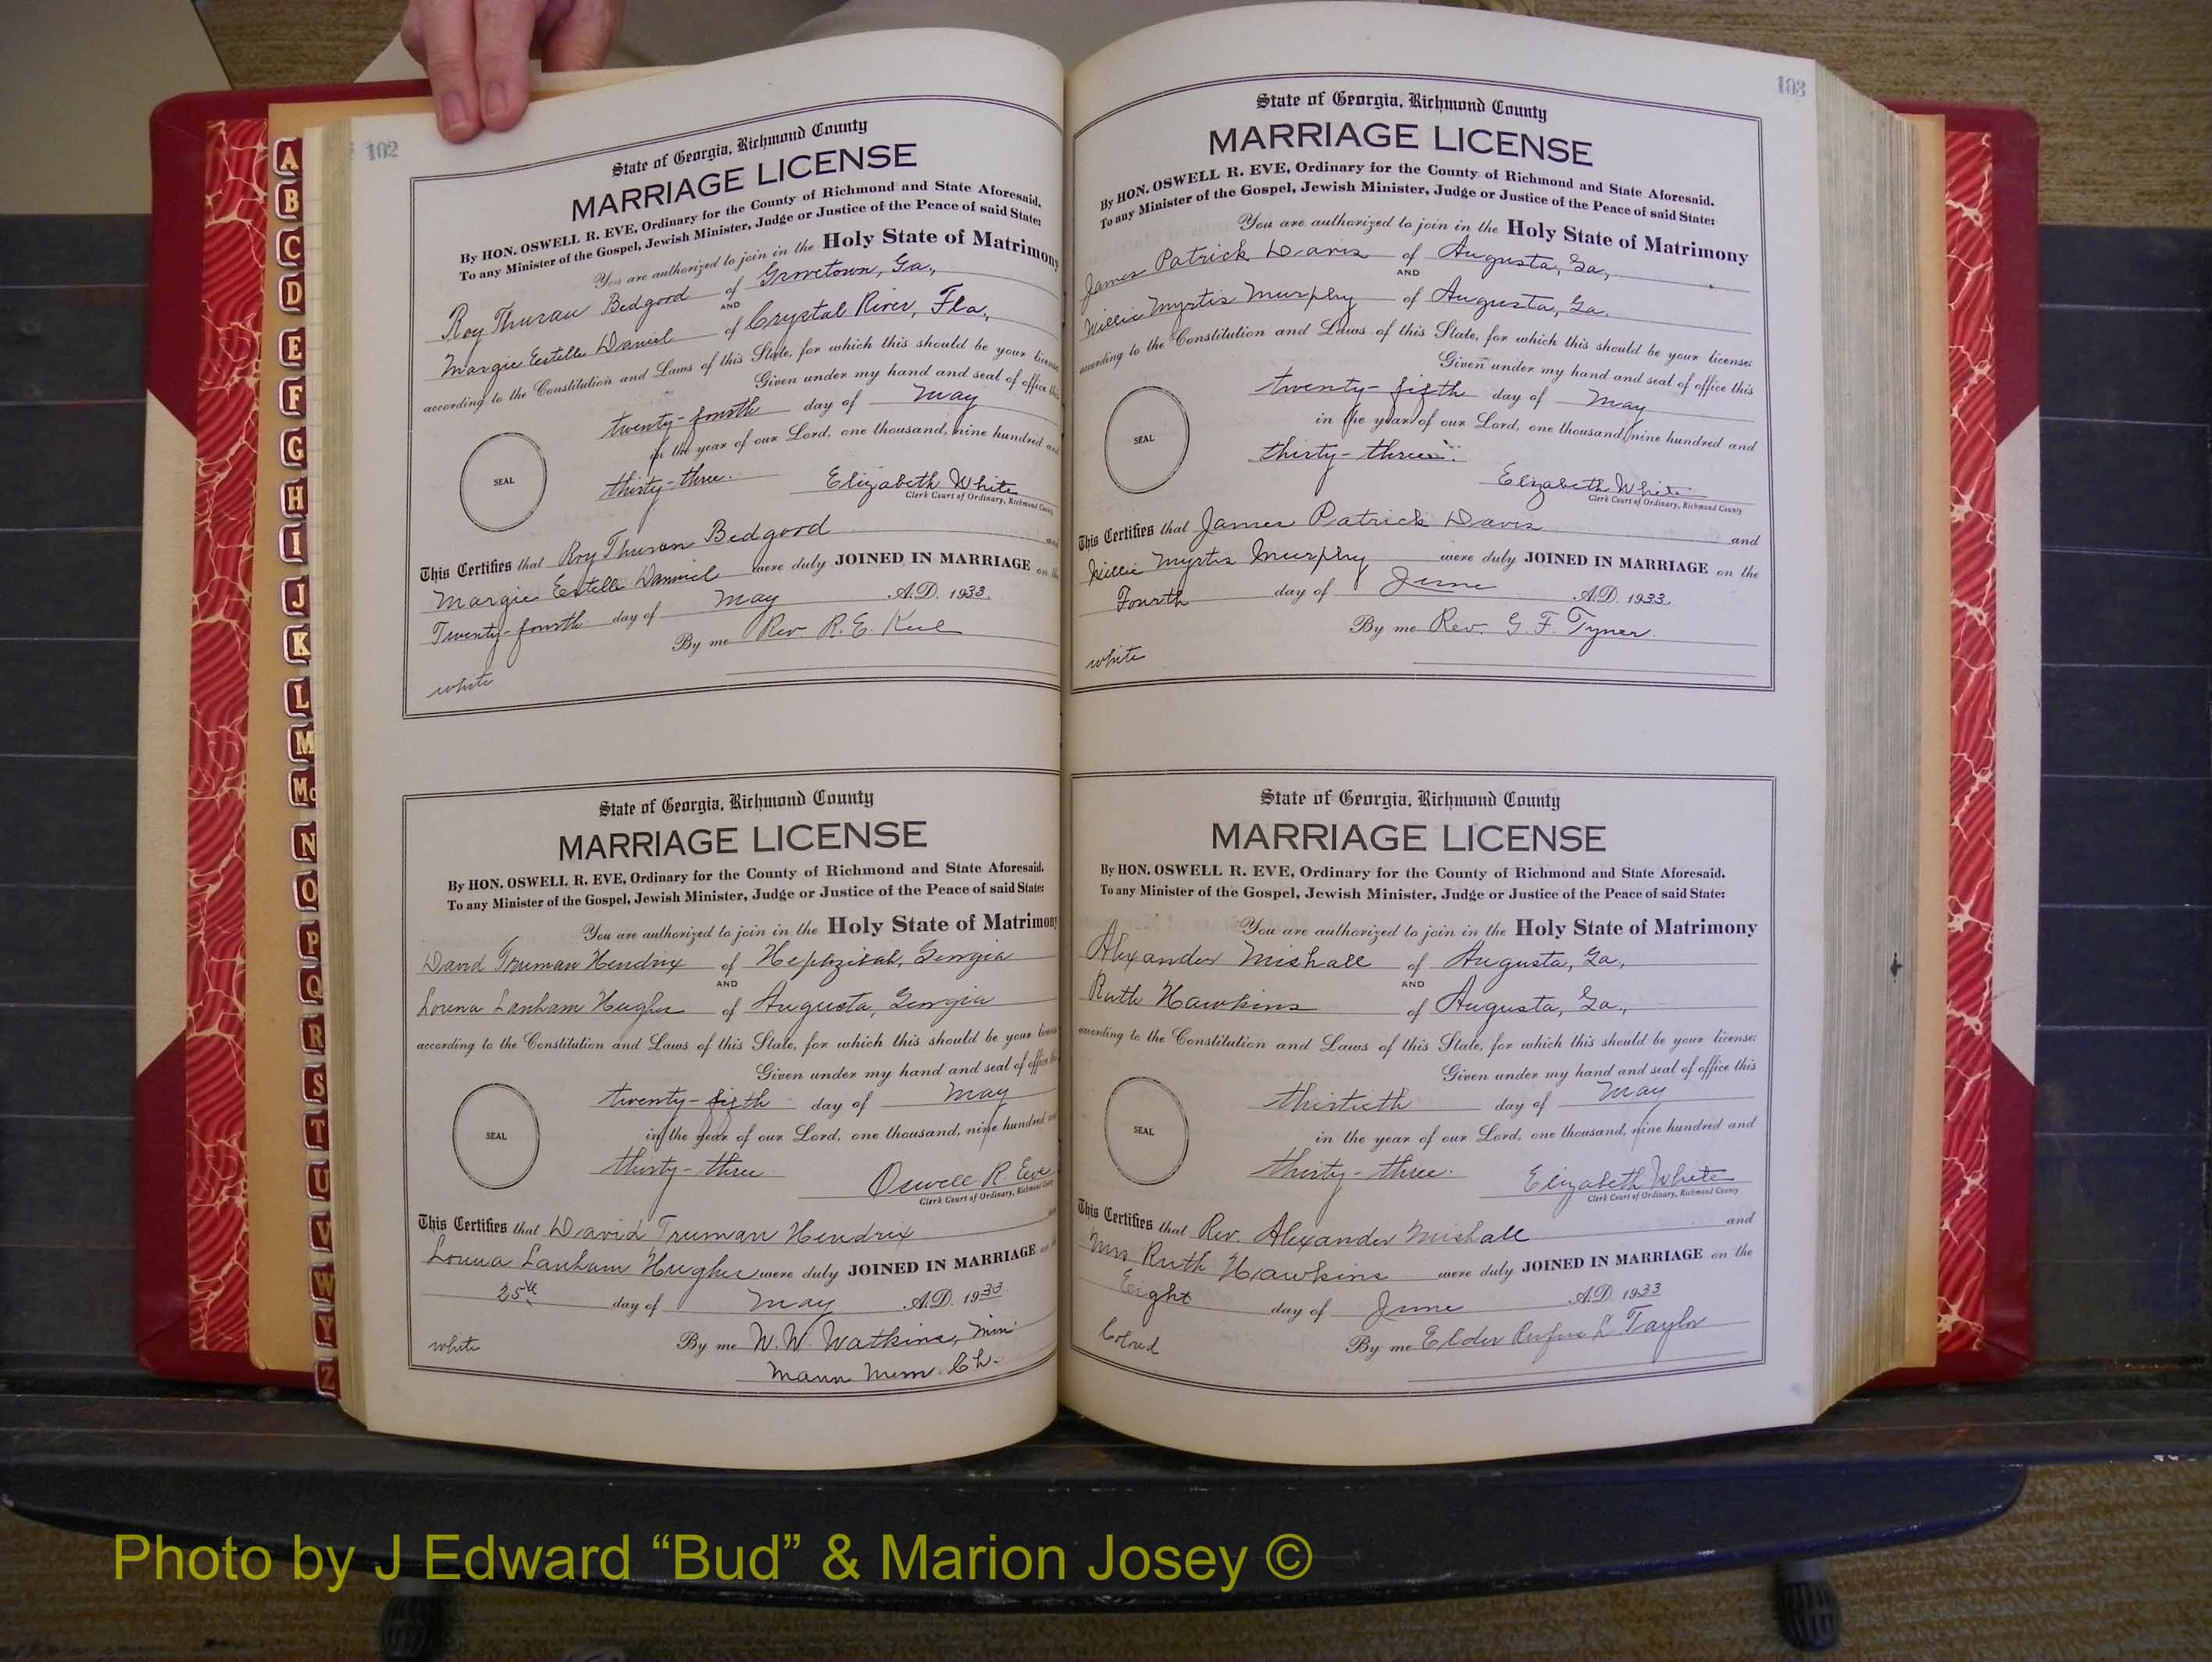 102
State of Georgia, Richmond County
MARRIAGE LICENSE
By HON. OSWELL R. EVE, Ordinary for the County of Richmond and State Aforesaid.
To any Minister of the Gospel, Jewish Minister, Judge or Justice of the Peace of said State:
You are authorized to join in the Holy State of Matrimony
Roy Thuran Bedgood of Grovetown, Ga.,
AND
Margie Estelle Daniel of Crystal River, Fla.,
according to the Constitution and Laws of this State, for which this should be your license
Given under my hand and seal of office this
twenty-fourth day of May
in the year of our Lord, one thousand, nine hundred and
thirty-three.
SEAL
Elizabeth White
Clerk Court of Ordinary, Richmond County
This Certifies that Roy Thuran Bedgood and
Margie Estelle Danniel were duly JOINED IN MARRIAGE on the
Twenty-fourth day of May A.D. 1933.
By me Rev. R. E.
white
State of Georgia, Richmond County
MARRIAGE LICENSE
By HON. OSWELL R. EVE, Ordinary for the County of Richmond and State Aforesaid.
To any Minister of the Gospel, Jewish Minister, Judge or Justice of the Peace of said State:
You are authorized to join in the Holy State of Matrimony
David Truman Hendrix of Hephzibah, Georgia
AND
Lanham Hughes of Augusta, Georgia
according to the Constitution and Laws of this State, for which this should be your license
Given under my hand and seal of office this
twenty-fifth day of May
in the year of our Lord, one thousand, nine hundred and
thirty-three
SEAL
Oswell R. Eve
Clerk Court of Ordinary, Richmond County
This Certifies that David Truman Hendrix and
Lanham Hughes were duly JOINED IN MARRIAGE on the
25th day of May A.D. 1933.
By me W. W. Watkins, Min.
Mann Mem. Ch.
white
103
State of Georgia, Richmond County
MARRIAGE LICENSE
By HON. OSWELL R. EVE, Ordinary for the County of Richmond and State Aforesaid.
To any Minister of the Gospel, Jewish Minister, Judge or Justice of the Peace of said State:
You are authorized to join in the Holy State of Matrimony
James Patrick Davis of Augusta, Ga.,
AND
Willie Myrtis Murphy of Augusta, Ga.
according to the Constitution and Laws of this State, for which this should be your license:
Given under my hand and seal of office this
twenty-fifth day of May
in the year of our Lord, one thousand, nine hundred and
thirty-three.
SEAL
Elizabeth White
Clerk Court of Ordinary, Richmond County
This Certifies that James Patrick Davis and
Willie Myrtis Murphy were duly JOINED IN MARRIAGE on the
Fourth day of June A.D. 1933.
By me Rev. G. F. Tyner.
white
State of Georgia, Richmond County
MARRIAGE LICENSE
By HON. OSWELL R. EVE, Ordinary for the County of Richmond and State Aforesaid.
To any Minister of the Gospel, Jewish Minister, Judge or Justice of the Peace of said State:
You are authorized to join in the Holy State of Matrimony
Alexander Mishall of Augusta, Ga.,
AND
Ruth Hawkins of Augusta, Ga.,
according to the Constitution and Laws of this State, for which this should be your license:
Given under my hand and seal of office this
thirtieth day of May
in the year of our Lord, one thousand, nine hundred and
thirty-three.
SEAL
Elizabeth White
Clerk Court of Ordinary, Richmond County
This Certifies that Rev. Alexander Mishall and
Mrs. Ruth Hawkins were duly JOINED IN MARRIAGE on the
Eight day of June A.D. 1933
By me Elder Rufus L Taylor
Colored
A
B
C
D
E
F
G
H
I
J
K
L
M
Mc
N
O
P
Q
R
S
T
U
V
W
Y
Z
Photo by J Edward “Bud” & Marion Josey ©